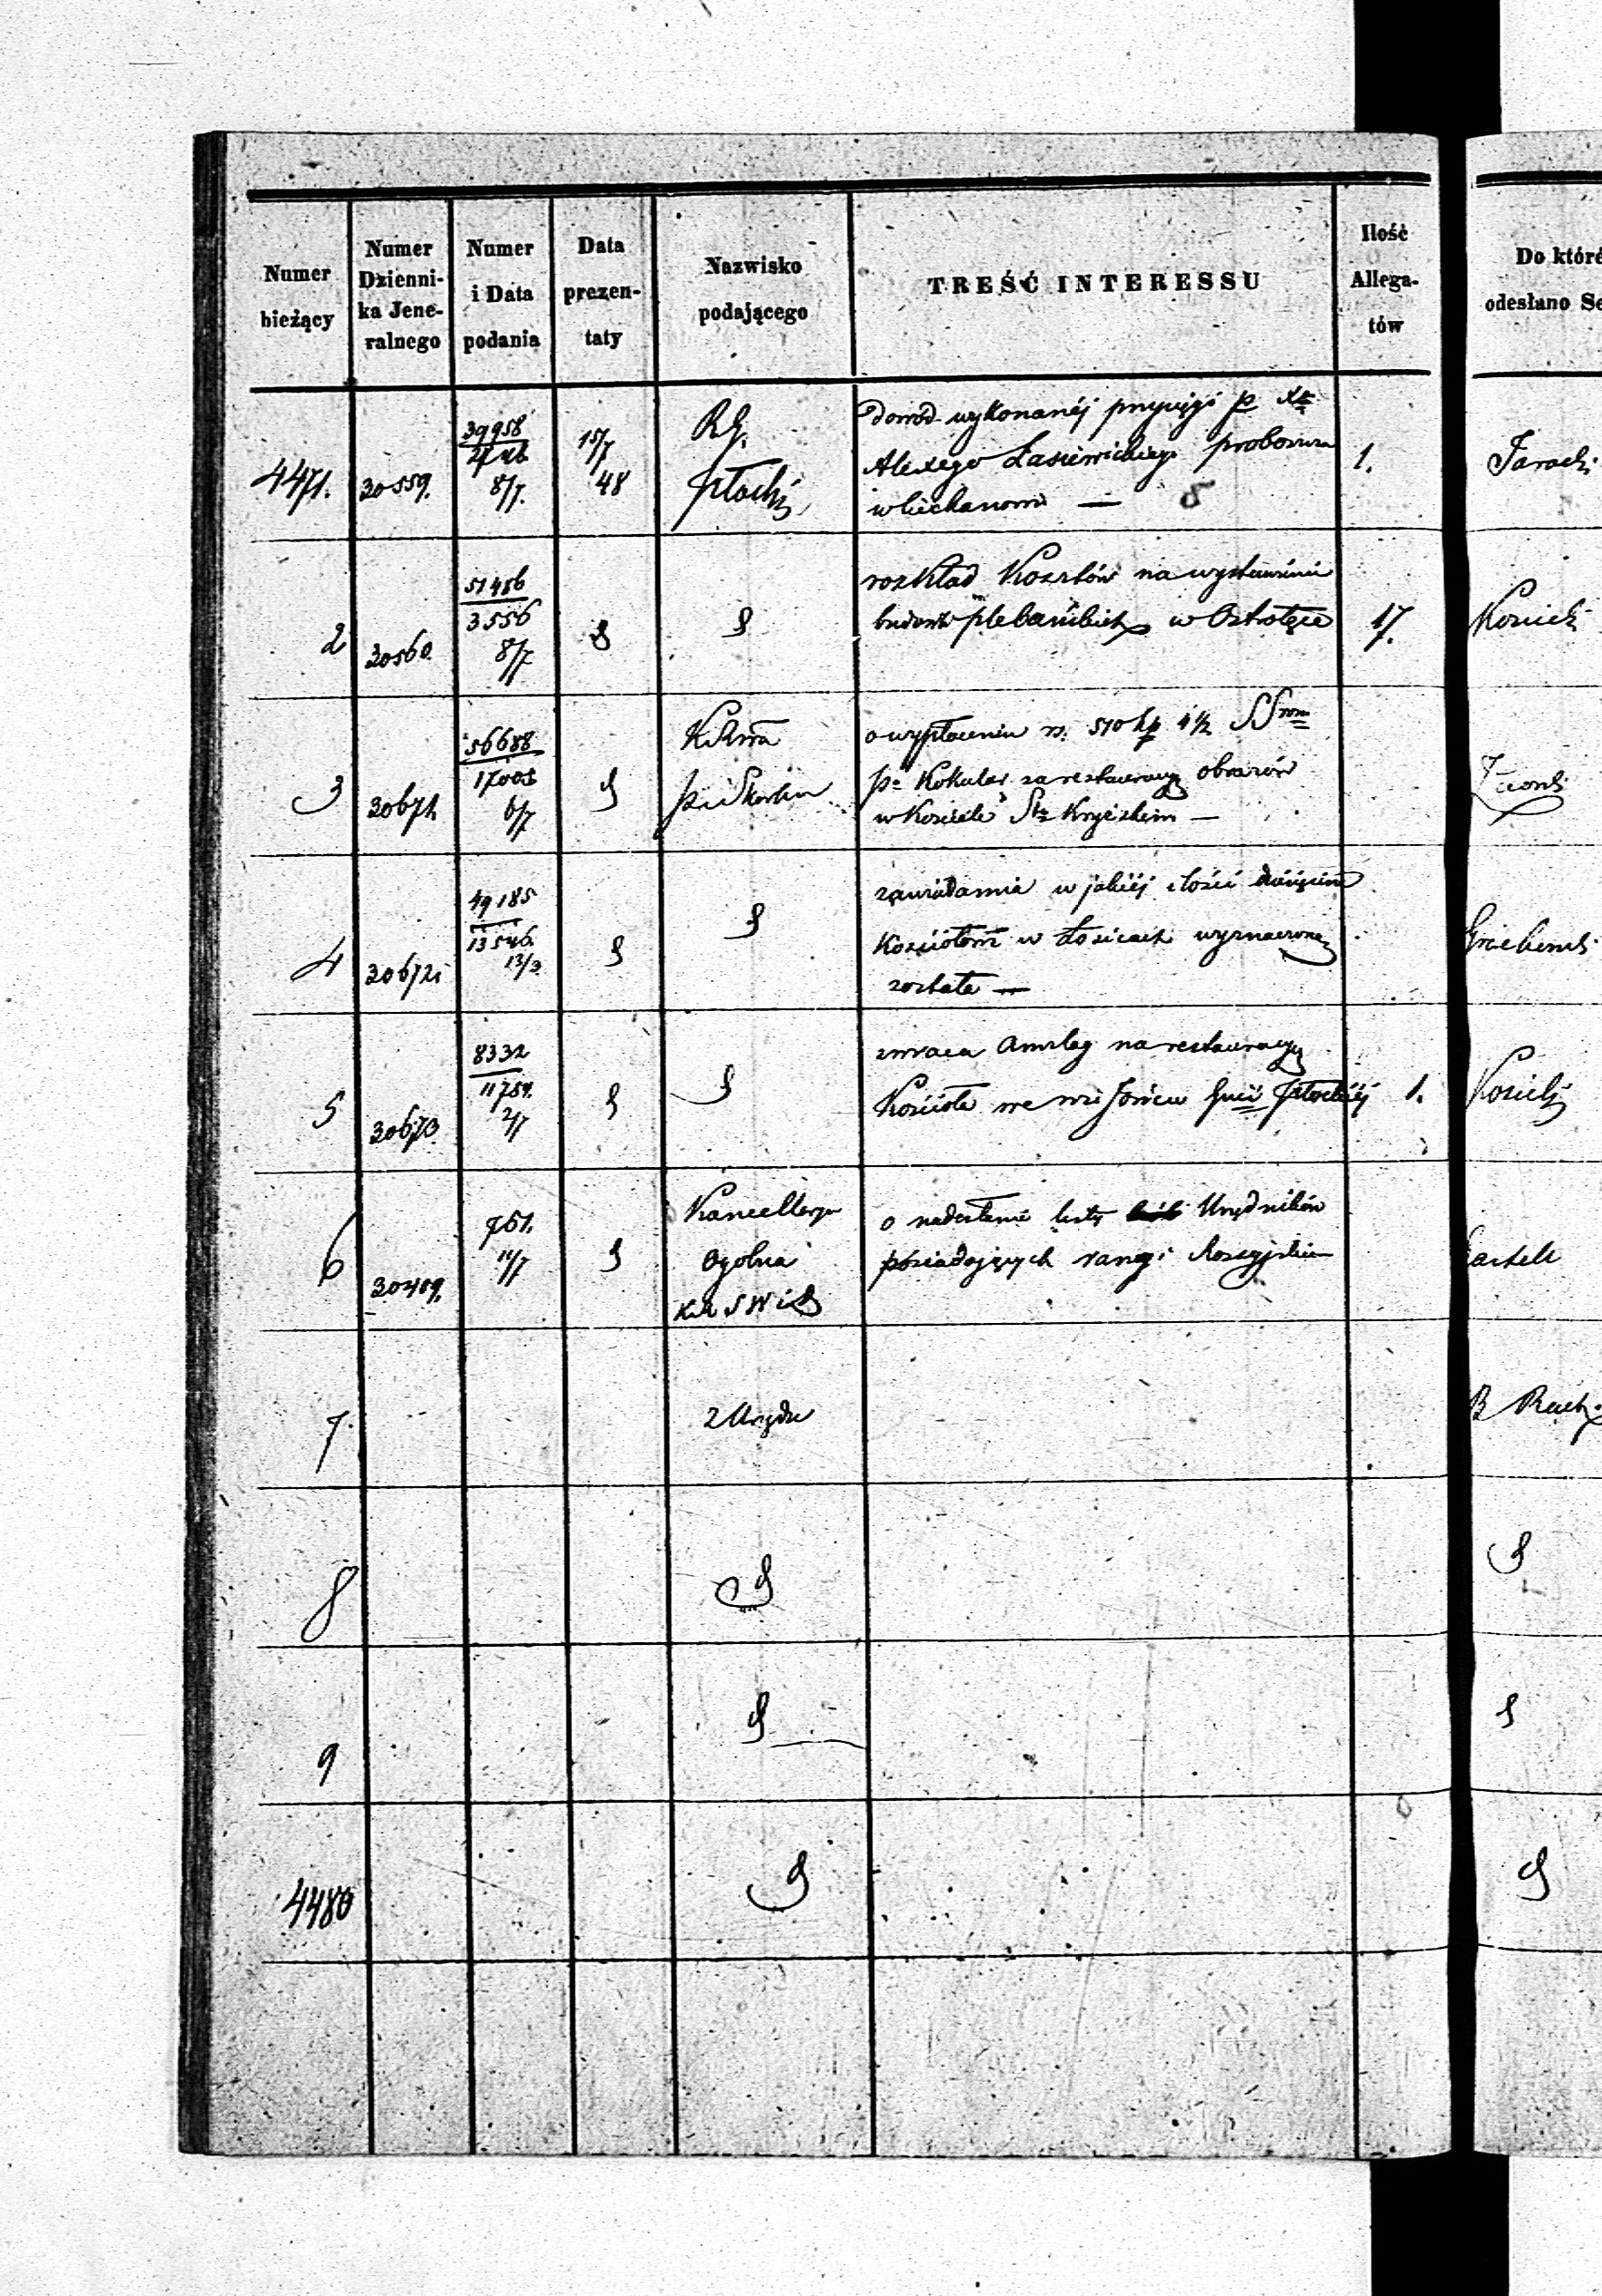 Numer bieżący
Numer Dzienni-ka Jene-ralnego
Numer i Data podania
Data prezen-taty
Nazwisko podającego
TREŚĆ INTERESSU
Ilość Allega-tów
Do któré
odesłano Se
4471.
30559.
39958
8/7.
15/7
48
R.G.
Płocki
dowód wykonanéj przysięgi p Xa
Alexego Łasiewickiego proboszcza
w Ciechanowie —
1.
Jarocki
2
30560
51486
3556
8/7
rozkład Kosztów na wystawienie
budowli plebańskich w Ostrołęce
17.
Kosicki
3
30671
56688
17003
6/7
KRPiSkarbu
o wypłacenie rs. 510 kp 4½
pu Kokular za restauracyę obrazów
w Kościele Sto Krzyzkim —
4
30672
49185
13546
13/3
zawiadamia w jakiéj ilości
Kościołowi w Łosicach wyznaczone
zostały —
5
30673
8332
11754.
2/7
zwraca Anszlag na restauracyę
Kościoła we wsi Gunii Płockiéj
1.
Kosicki
6
30409.
751.
11/7
Kancellarya
Ogólna
KRSWiD
o nadesłanie listy Urzędników
posiadających rangi Rossyjskie
7.
z Urzędu
B Rach.
8
9
4480